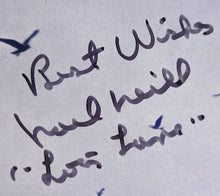 Best Wishes
Noel Neill
"Lois Lane"